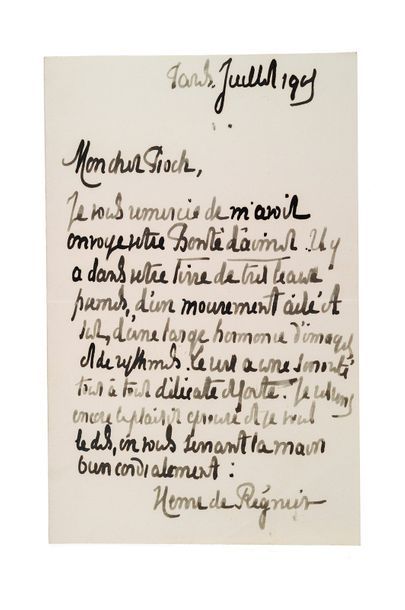 Paris, Juillet 1905
Mon cher Pioch,
Je vous remercie de m'avoir
envoyé votre Bonté d'aimer. Il y
a dans votre livre de très beaux
poèmes, d'un mouvement ailé et
sûr, d'une large harmonie d'images
et de rythmes. Le vers a une sonorité
tour à tour délicate et forte. Je
encore le plaisir éprouvé et je vous
le dis, en vous serrant la main
bien cordialement :
Henri de Régnier